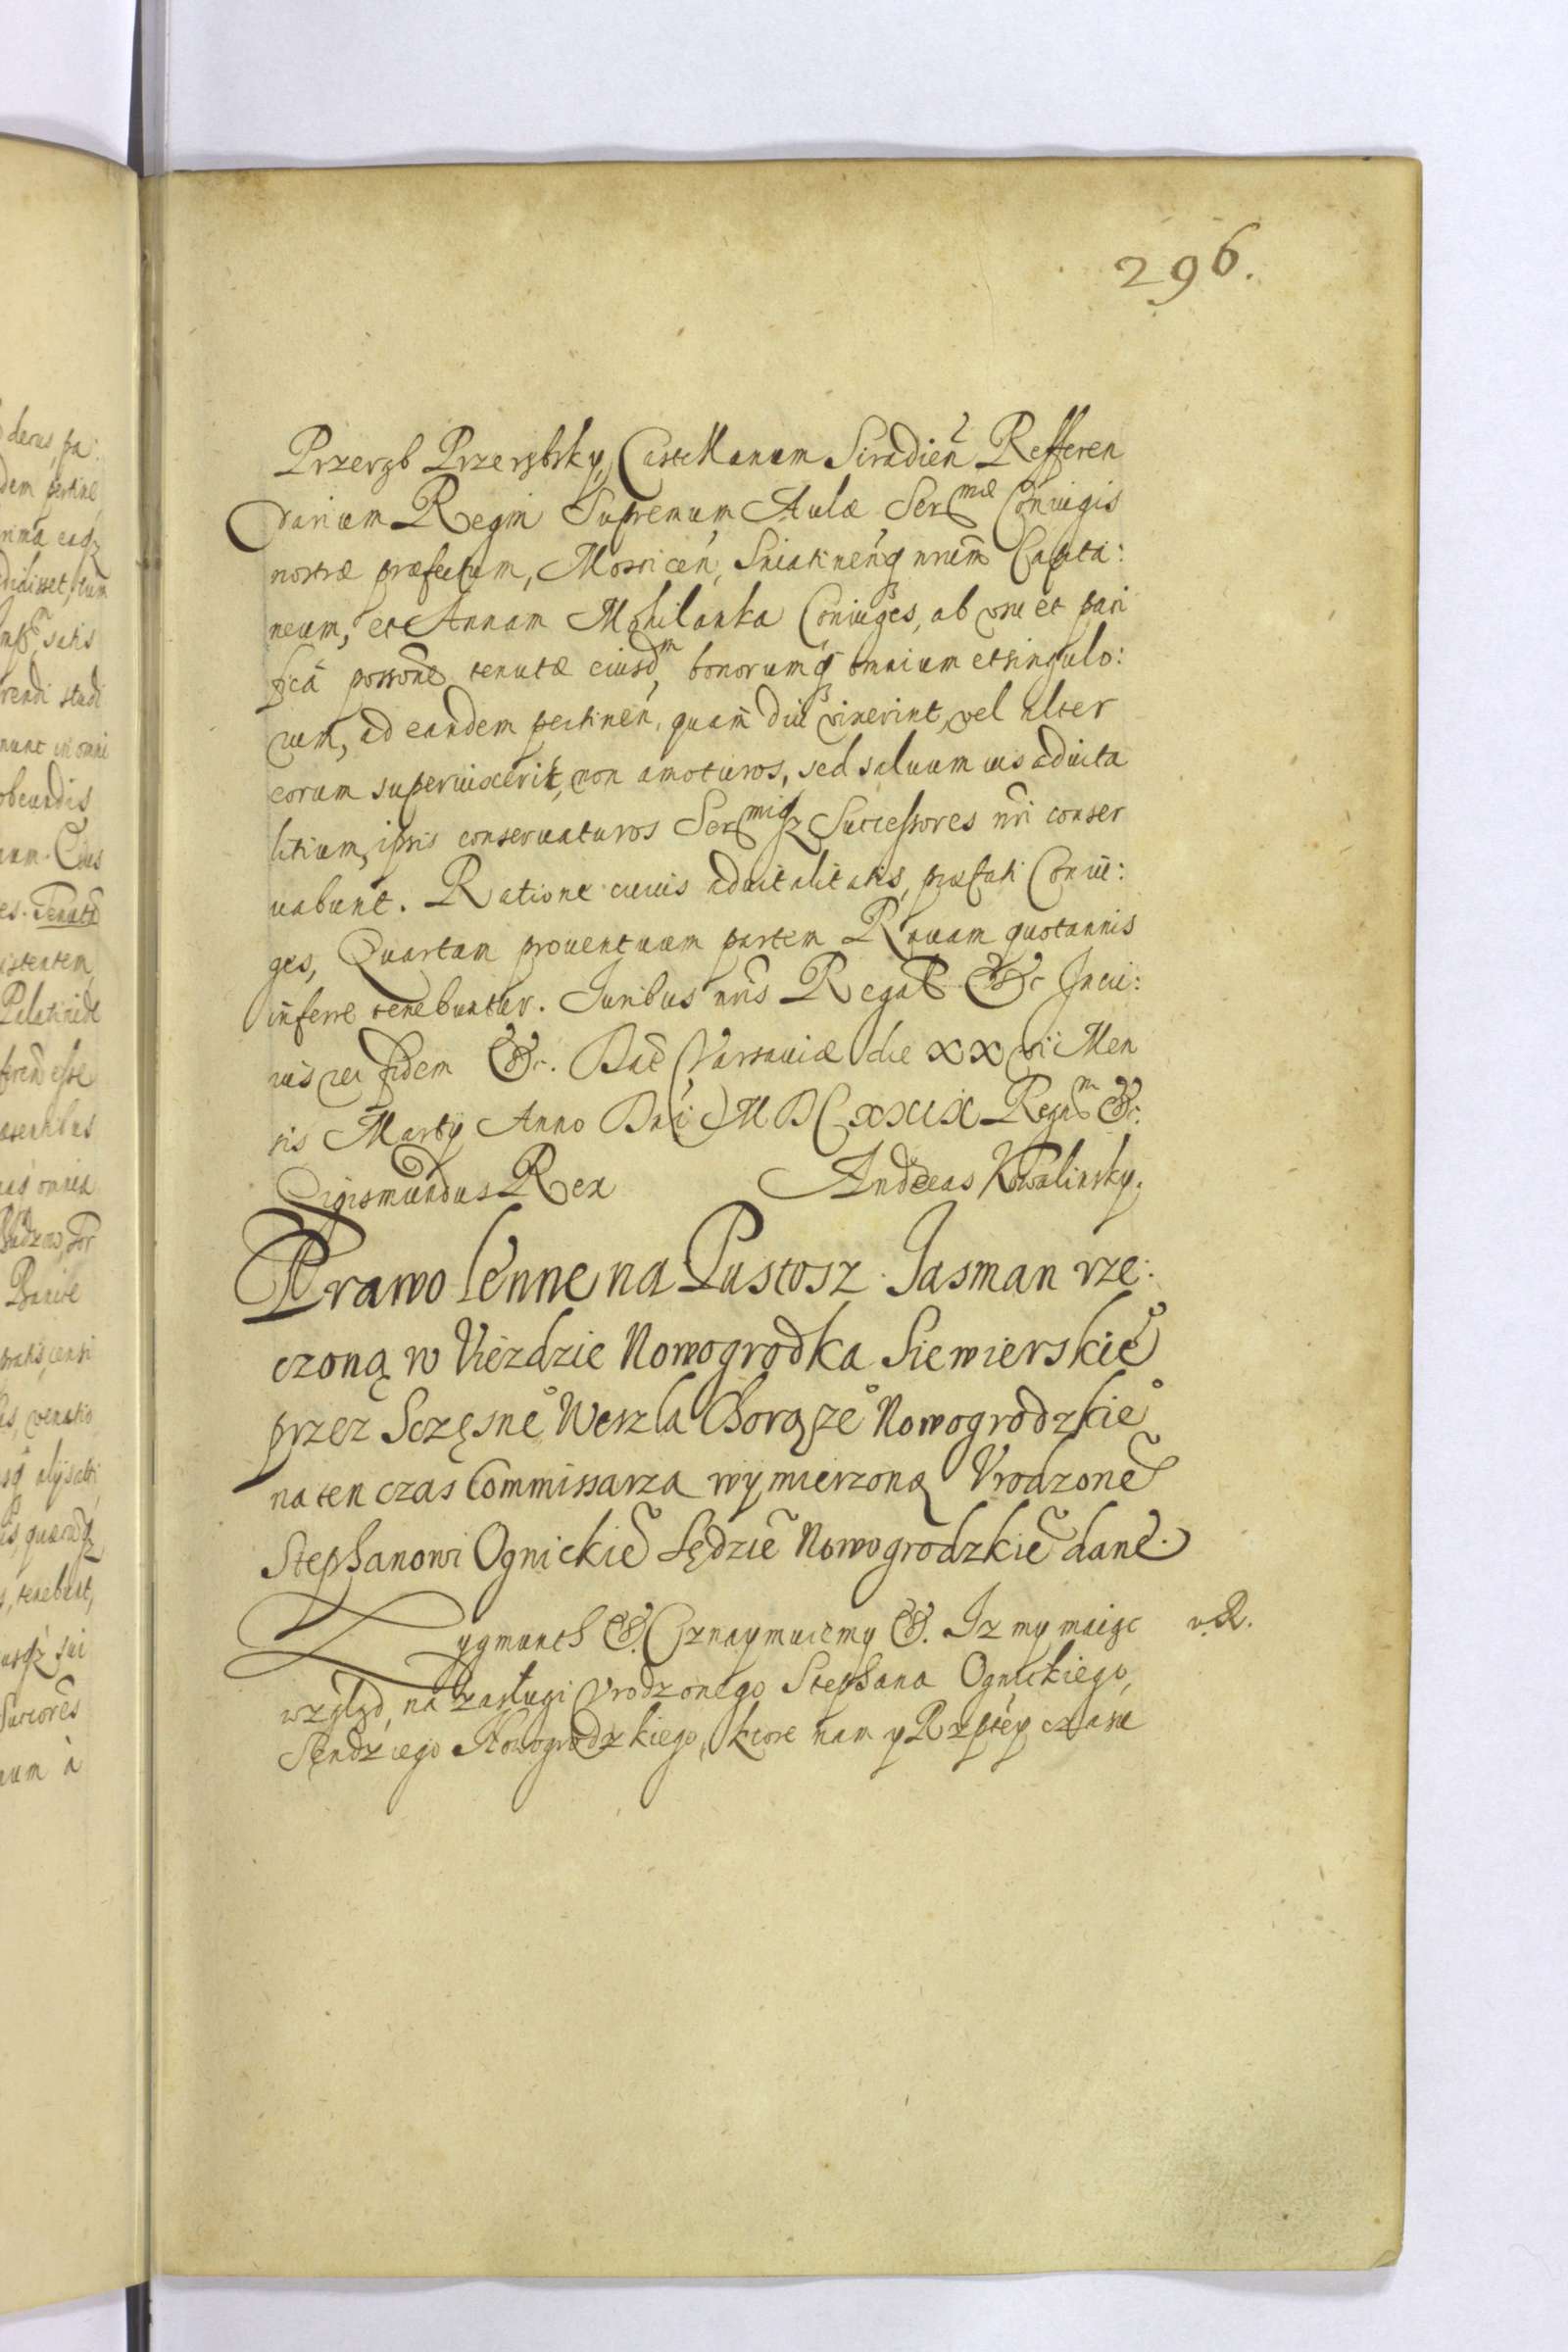 296.
Przerąb Przerębsky, Castellanum Siradien̄ Refferen
darium Regni Supremum Aulæ Ser^mæ Coniugis
nostræ præfectum, Mossicen̄, Sniatinen̄q nrum̄ Capita:
neum, et Annam Mohilanka Coniuges, ab usu et paci
fica possone tenutæ eiusd^m, bonorumq omnium et singulo:
rum, ad eandem pertinen̄, quam diu vixerint, vel alter
eorum superuixerit, non amoturos, sed saluum ius aduita
litium, ipsis conseruaturos Ser^miqz Successores nri conser
uabunt. Ratione cuius aduitalitatis, præfati Coniu:
ges, Quartam prouentuum partem Rauam quotannis
inferre tenebuntur. Juribus nris Regal &c Jn cu:
ius rei fidem &c. Dat̄ Varsauiæ die XXVI Men
sis Martij Anno Dni MDCXXIX Regn^m &c.
Sigismundus Rex Andreas Kowalinsky.
Prawo lenne na Pustosz Jasman rze:
czoną w Vieżdzie Nowogrodka Siewierskie^o
przez Sczęsne^o Weszla Chorąże^o Nowogrodzkie^o
na ten czas Commissarza wymierzoną Vrodzone̅
Stephanowi Ognickie̅ Sędzie̅ Nowogrodzkie̅ dane.
Zygmunth &. Oznaymuiemy &. Jz my maiąc v. R.
wzgląd, na zasługi Vrodzonego Stephana Ognickiego,
Sęndziego Nowogrodzkiego, ktore nam y Rzptey czasu